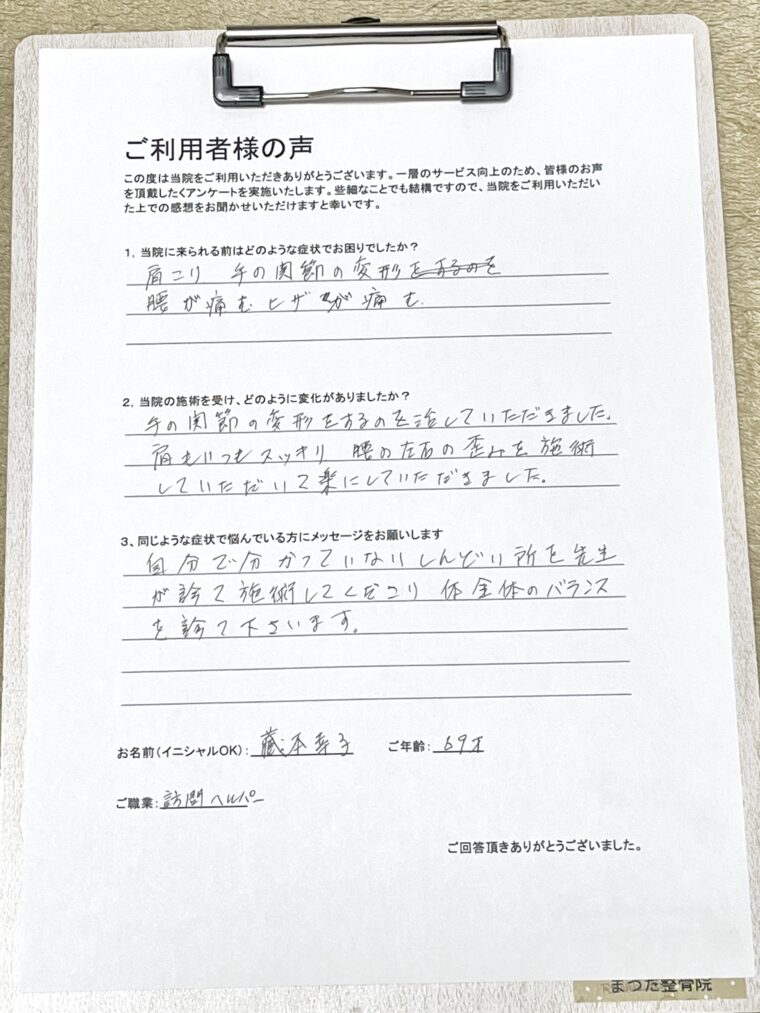 ご利用者様の声
この度は当院をご利用いただきありがとうございます。一層のサービス向上のため、皆様のお声
を頂戴したくアンケートを実施いたします。些細なことでも結構ですので、当院をご利用いただい
た上での感想をお聞かせいただけますと幸いです。
1．当院に来られる前はどのような症状でお困りでしたか？
肩こり 手の関節の変形をするのを
腰が痛む ヒザが痛む
2．当院の施術を受け、どのように変化がありましたか？
手の関節の変形をするのを治していただきました。
肩もいつもスッキリ 腰の左右の歪みを施術
していただいて楽にしていただきました。
3、同じような症状で悩んでいる方にメッセージをお願いします
自分で分かっていないしんどい所を先生
が診て施術してくださり 体全体のバランス
を診て下さいます。
お名前（イニシャルOK）：藏本幸子 ご年齢：69才
ご職業：訪問ヘルパー
ご回答頂きありがとうございました。
まつだ整骨院